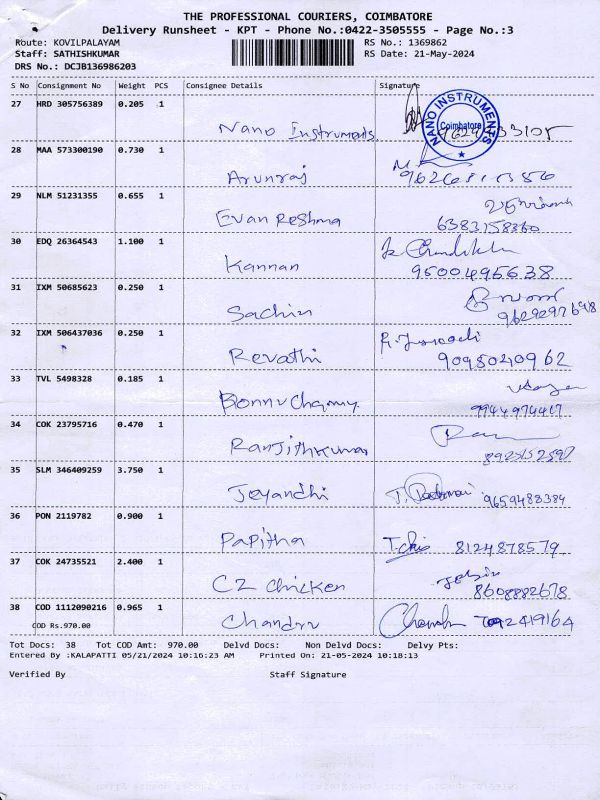 THE PROFESSIONAL COURIERS, COIMBATORE
Delivery Runsheet - KPT - Phone No.:0422-3505555 - Page No.:3
Route: KOVILPALAYAM RS No.: 1369862
Staff: SATHISHKUMAR RS Date: 21-May-2024
DRS No.: DCJB136986203
S No Consignment No Weight PCS Consignee Details Signature
27 HRD 305756389 0.205 1
Nano Instruments
NANO INSTRUMENTS
Coimbatore
28 MAA 573300190 0.730 1
Arunraj
29 NLM 51231355 0.655 1
Evan Reshma 6383158360
30 EDQ 26364543 1.100 1
Kannan 9500495638
31 IXM 50685623 0.250 1
Sachin 9629297698
32 IXM 506437036 0.250 1
Revathi 9095040962
33 TVL 5498328 0.185 1
9944974417
34 COK 23795716 0.470 1
Ranjithkumar
35 SLM 346409259 3.750 1
Jeyandhi 9659488384
36 PON 2119782 0.900 1
Papitha 8124878579
37 COK 24735521 2.400 1
CZ Chicken 8608882678
38 COD 1112090216 0.965 1
COD Rs.970.00
Chandru
Tot Docs: 38 Tot COD Amt: 970.00 Delvd Docs: Non Delvd Docs: Delvy Pts:
Entered By :KALAPATTI 05/21/2024 10:16:23 AM Printed On: 21-05-2024 10:18:13
Verified By Staff Signature